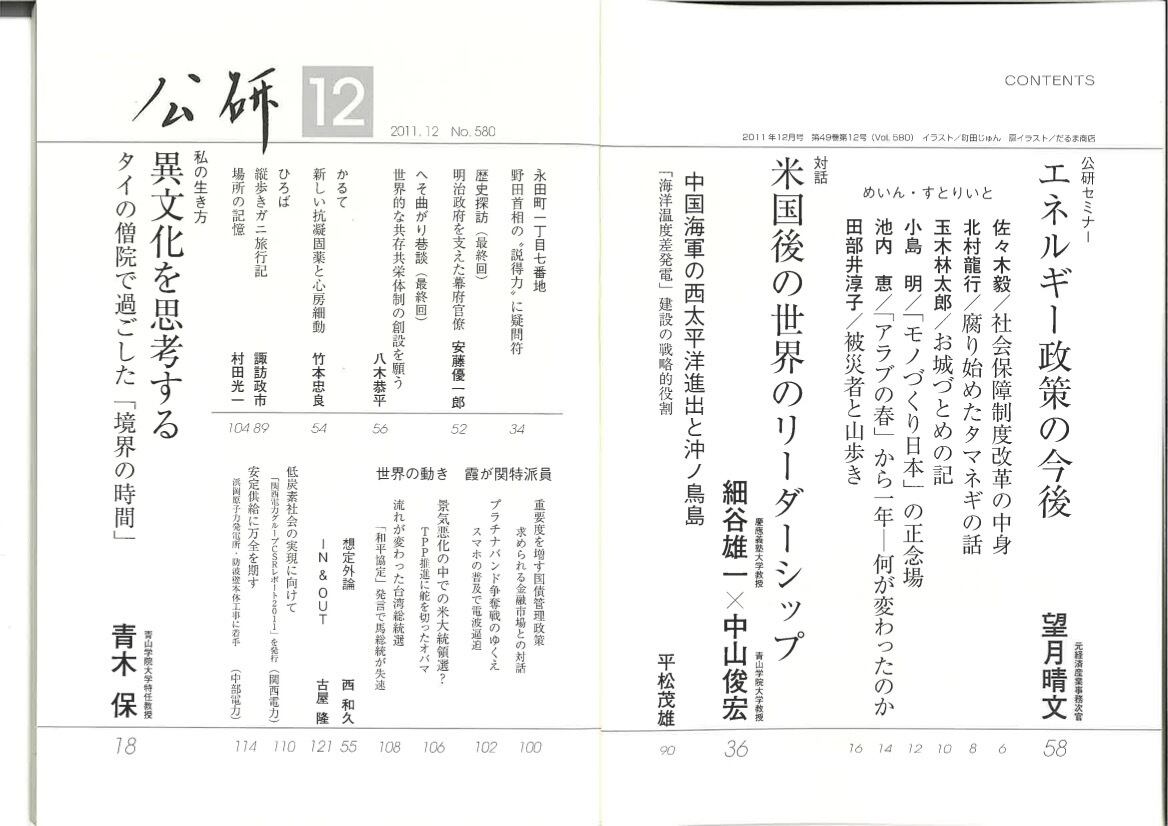 CONTENTS
2011年12月号 第49巻第12号(Vol.580) イラスト/町田じゅん 扉イラスト/だるま商店
公研セミナー
エネルギー政策の今後
元経済産業事務次官
望月晴文
58
めいん・すとりいと
佐々木毅/社会保障制度改革の中身
6
北村龍行/腐り始めたタマネギの話
8
玉木林太郎/お城づとめの記
10
小島 明/「モノづくり日本」の正念場
12
池内 恵/「アラブの春」から一年―何が変わったのか
14
田部井淳子/被災者と山歩き
16
対話
米国後の世界のリーダーシップ
慶應義塾大学教授
青山学院大学教授
細谷雄一×中山俊宏
36
中国海軍の西太平洋進出と沖ノ鳥島
「海洋温度差発電」建設の戦略的役割
平松茂雄
90
公研 12
2011.12 No.580
永田町一丁目七番地
野田首相の〝説得力〟に疑問符
34
歴史探訪(最終回)
明治政府を支えた幕府官僚 安藤優一郎
52
へそ曲がり巷談(最終回)
世界的な共存共栄体制の創設を願う
八木恭平
56
かるて
新しい抗凝固薬と心房細動 竹本忠良
54
ひろば
縦歩きガニ旅行記 諏訪政市
89
場所の記憶 村田光一
104
霞が関特派員
重要度を増す国債管理政策
求められる金融市場との対話
100
プラチナバンド争奪戦のゆくえ
スマホの普及で電波逼迫
102
世界の動き
景気悪化の中での米大統領選?
TPP推進に舵を切ったオバマ
106
流れが変わった台湾総統選
「和平協定」発言で馬総統が失速
108
想定外論 西 和久
55
IN&OUT 古屋 隆
121
低炭素社会の実現に向けて
「関西電力グループCSRレポート2011」を発行(関西電力)
110
安定供給に万全を期す
浜岡原子力発電所・防波壁本体工事に着手 (中部電力)
114
私の生き方
異文化を思考する
タイの僧院で過ごした「境界の時間」
青山学院大学特任教授
青木 保
18